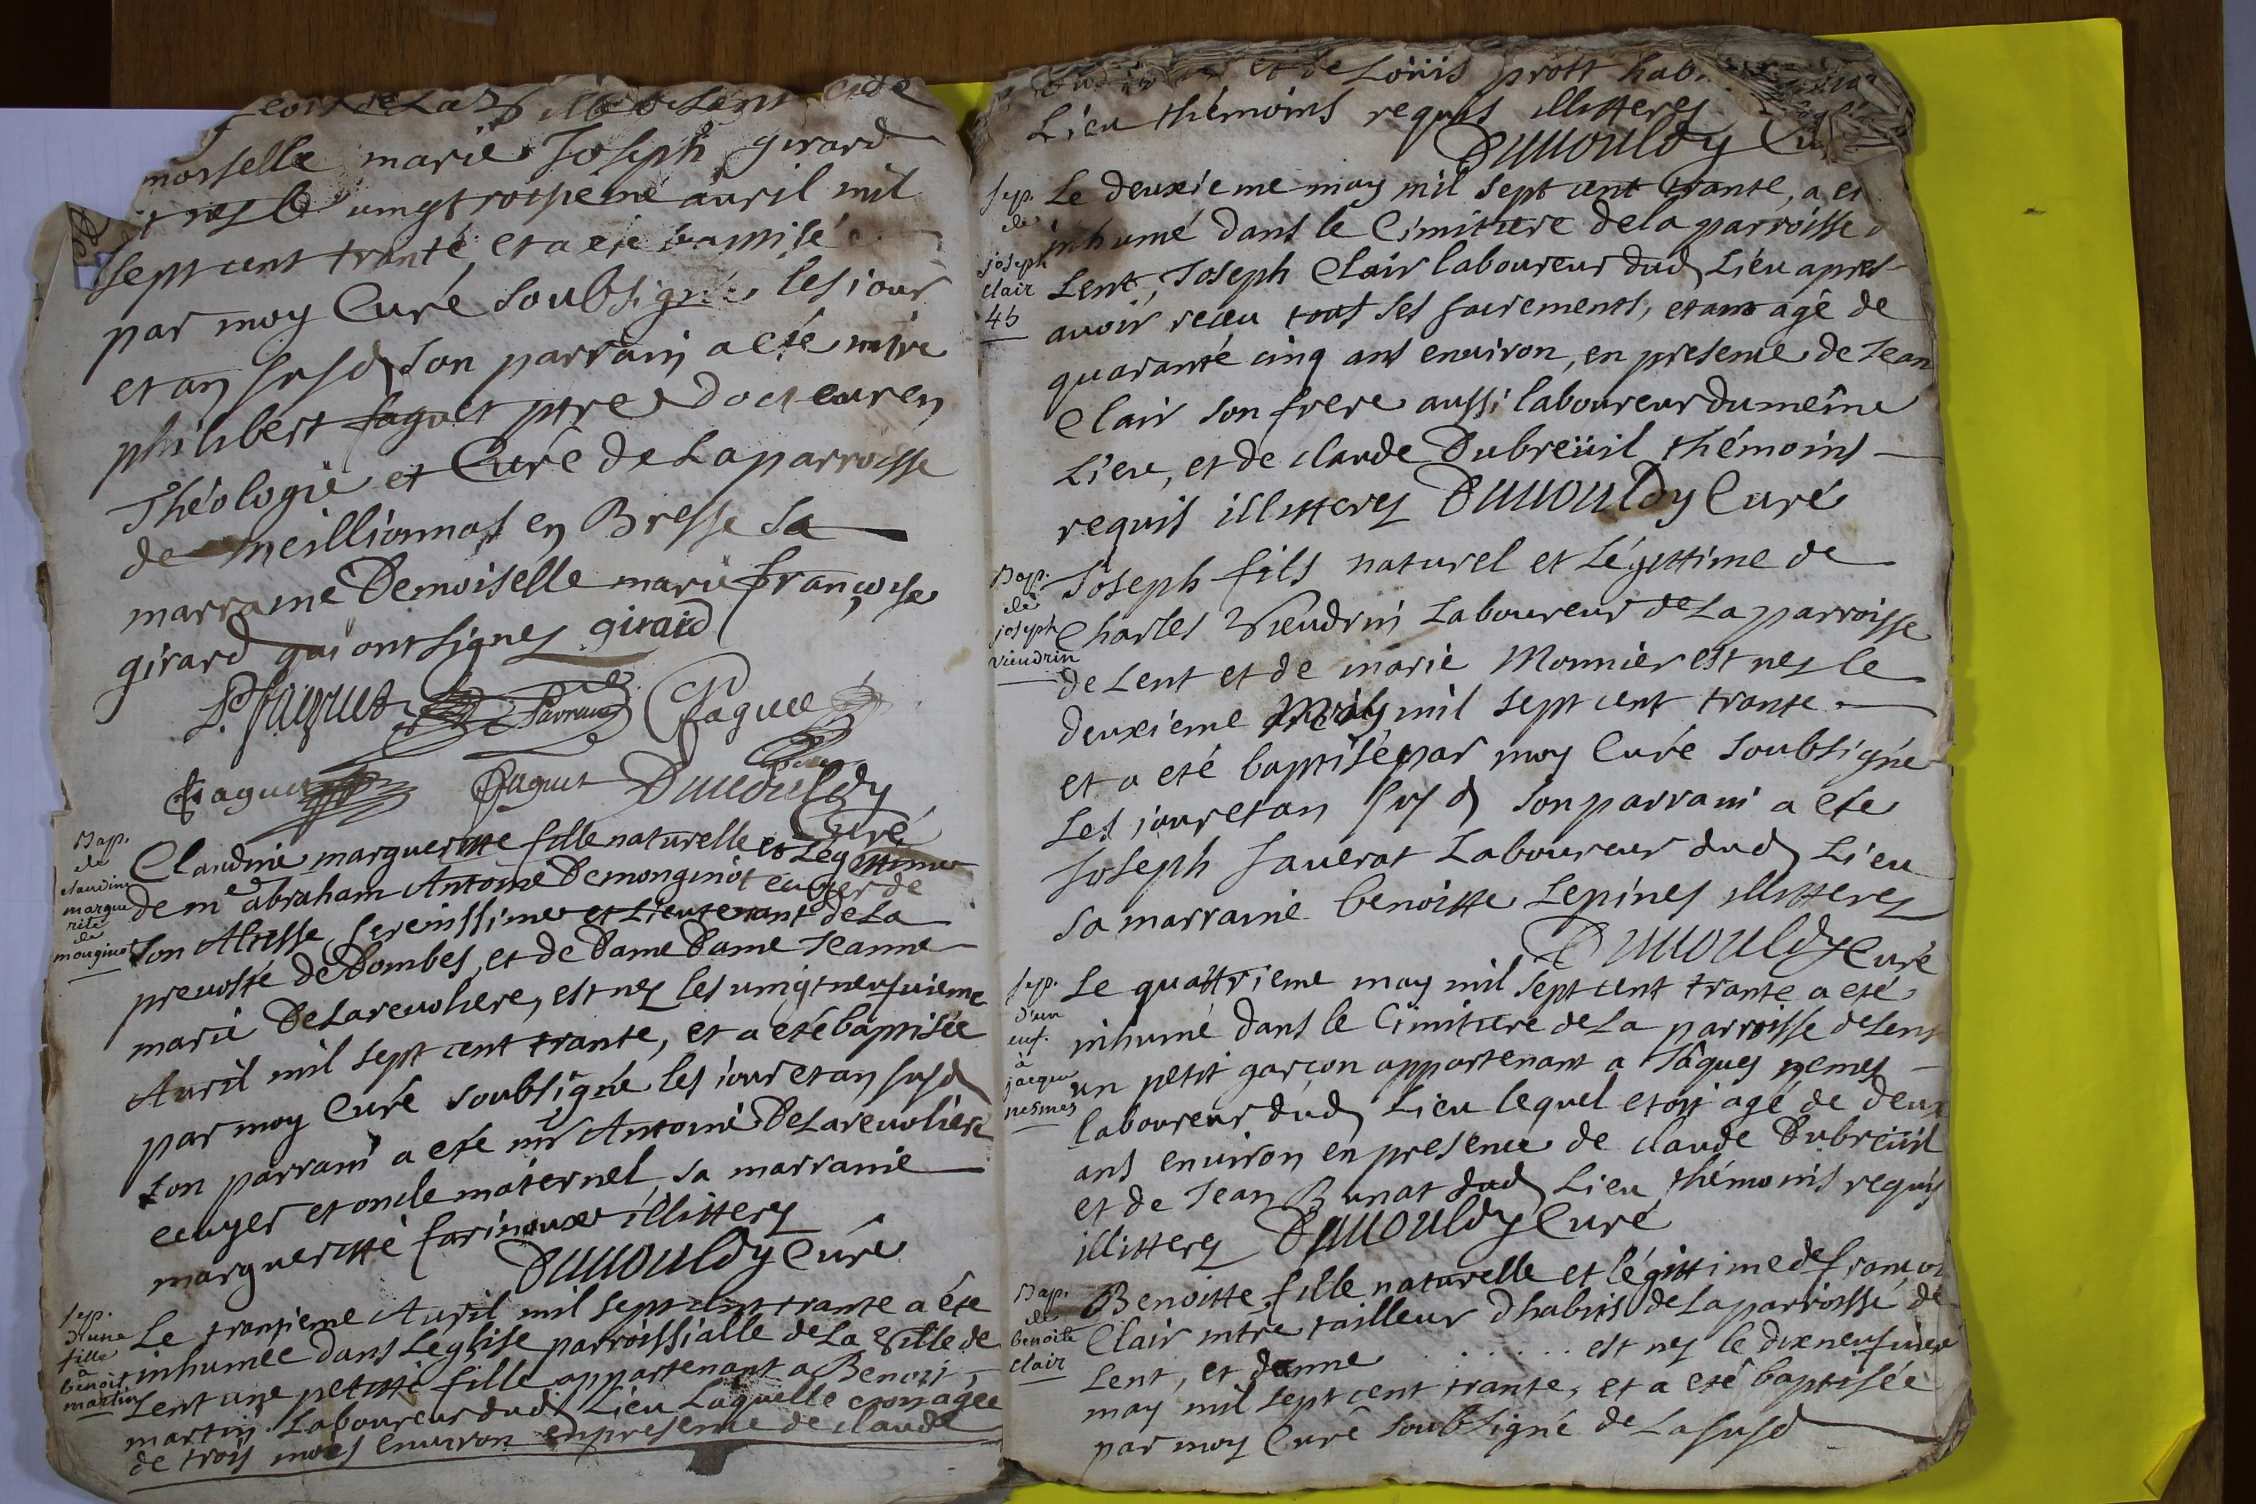 de La Ville de Lent et de
moiselle marie Joseph girard
est nez le vingt troisieme auril mil
sept cent trante, et a eté baptisé
par moy Curé soubsigné les jour
et an susd son parrain a eté mire
philibert faguet ptre Docteur en
Théologie et Curé de La parroisse
de meillionnas en Bresse sa
marraine Demoiselle marie françoise
girard qui ont signez girard
P. faguet Parrain faguet
faguet faguet Duuouldy
Curé
Bap.
de
claudine
margue
rite
de
monginot
Claudine margueritte fille naturelle et Légittime
de mre abraham Antoine Demonginot ecuyer de
son Altesse serenissime et Lieutenant de La
prevosté de Dombes, et de Dame Dame Jeanne
marie De Lareuoliere, est nez les vingt neufuieme
Auril mil sept cent trante, et a eté baptisée
par moy Curé soubsigné les iour et an susd
son parrain a eté mr Antoine De Lareuoliere
ecuyer et oncle maternel sa marraine
margueritte farinoux illitterez
Duuouldy Curé
sep.
d'une
fille
a
benoit
martin
Le trantieme Auril mil sept cent trante a éte
inhumée dans Leglise parroissialle de La Ville de
Lent une petitte fille appartenant a Benoit
martin Laboureur dud Lieu Laquelle etoit agee
de trois mois environ en presence de claude
et de Loüis prost hab
Lieu thémoins requis illitterez
Duuouldy Cu
sep.
de
joseph
clair
45
Le deuxieme may mil sept cent trante, a et
inhumé dans le Cimitiere de la parroisse d
Lent, Joseph Clair laboureur dud Lieu apres
auoir receu tout ses sacrements, etant agé de
quarante cinq ans environ, en presence de Jean
Clair son frere aussi laboureur du même
Lieu, et de claude Dubreüil thémoins
requis illitterez Duuouldy Curé
Bap.
de
joseph
vieudrin
Joseph fils naturel et Légittime de
Charles Vieudrin Laboureur de La parroisse
de Lent et de marie Monnier est nez le
deuxieme May mil sept cent trante
et a eté baptisé par moy Curé soubsigné
Les jour et an susd son parrain a eté
Joseph sauerat Laboureur dud Lieu
sa marraine benoitte Lepinez illitterez
Duuouldy Curé
sep.
d'un
enf.
a
jacque
nesmes
Le quattrieme may mil sept cent trante a eté
inhumé dans le Cimitiere de La parroisse de Lent
un petit garçon appartenant a Jâques nemes
laboureur dud Lieu lequel etoit agé de deux
ans environ en presence de claude Dubreüil
et de Jean Bunat dud Lieu thémoins requis
illitterez Duuouldy Curé
Bap.
de
benoite
clair
Benoitte fille naturelle et légittime de françoi
Clair mtre tailleur d'habits de La parroisse de
Lent, et d'anne . . . . . . est nez le dixneufuieme
may mil sept cent trante, et a eté baptisée
par moy Curé soubsigné de La susd